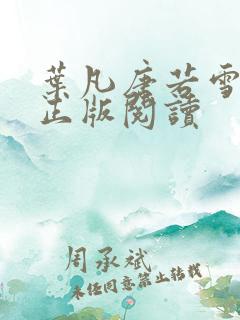 葉凡唐若雪
正版閱讀
周承斌
未經同意禁止轉載